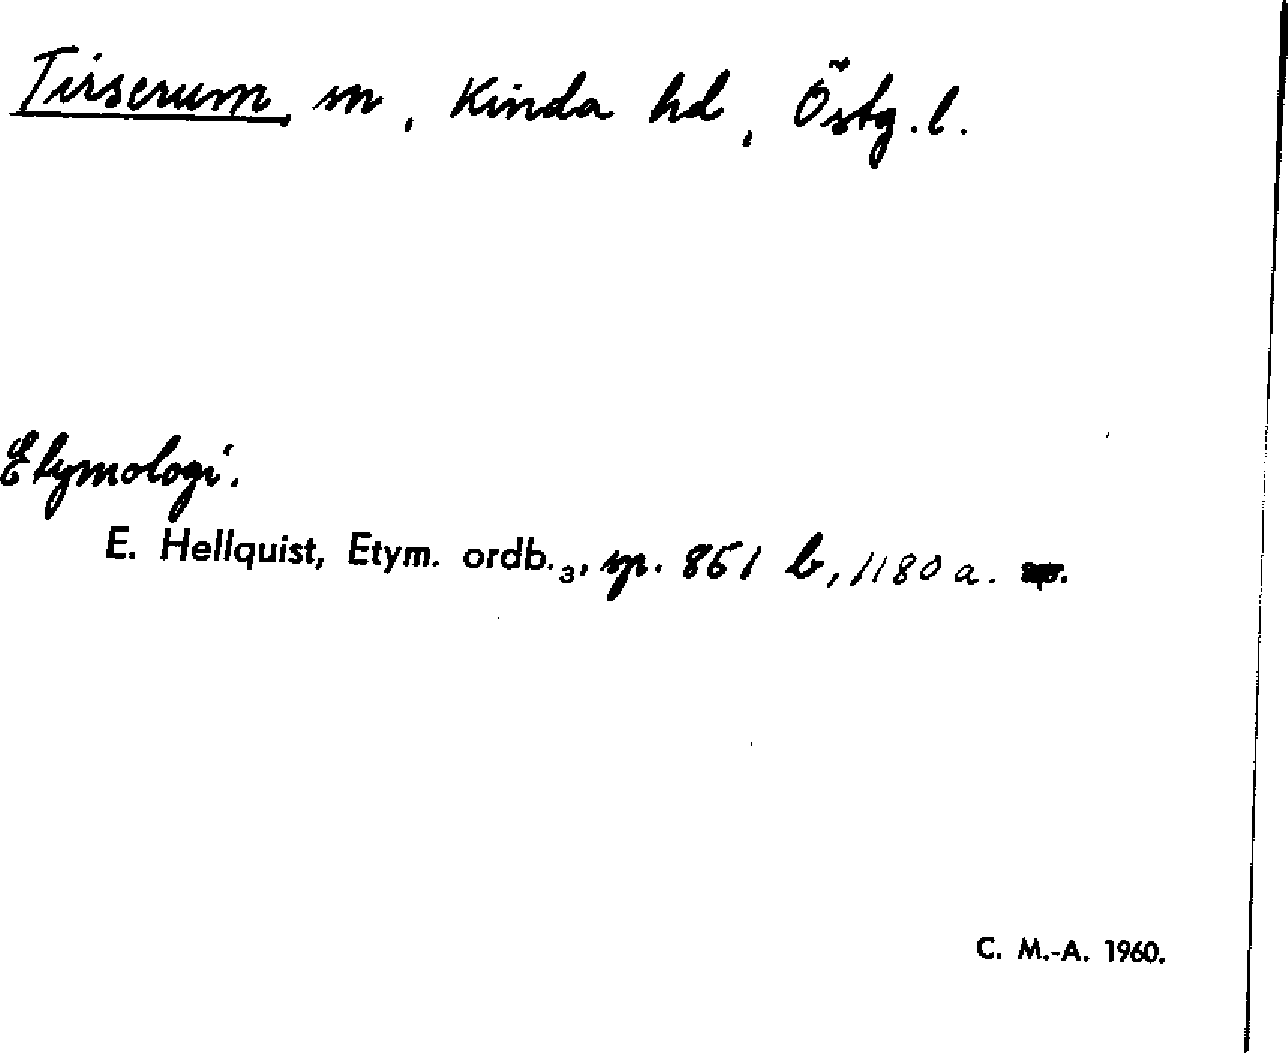 Tirserum sn, Kinda hd, Östg.l.
Etymologi.
E. Hellquist, Etym. ordb.₃, sp. 861 b, 1180 a.
C. M.-A. 1960.